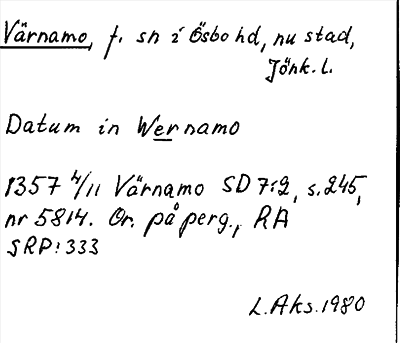 Värnamo, f. sn i Östbo hd, nu stad,
Jönk. l.
Datum in Wernamo
1357 4/11 Värnamo SD 7:2, s. 245,
nr 5814. Or. på perg., RA
SRP: 333
L. Aks. 1980